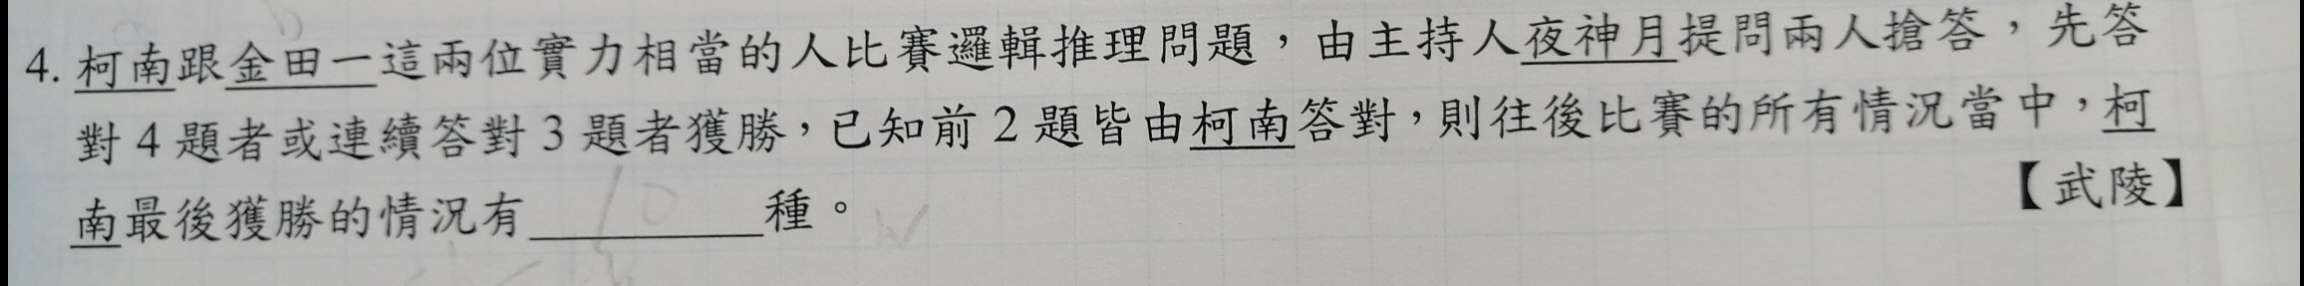 4. 柯南跟金田一這兩位實力相當的人比賽邏輯推理問題，由主持人夜神月提問兩人搶答，先答
對 4 題者或連續答對 3 題者獲勝，已知前 2 題皆由柯南答對，則往後比賽的所有情況當中，柯
南最後獲勝的情況有＿＿＿＿種。
【武陵】